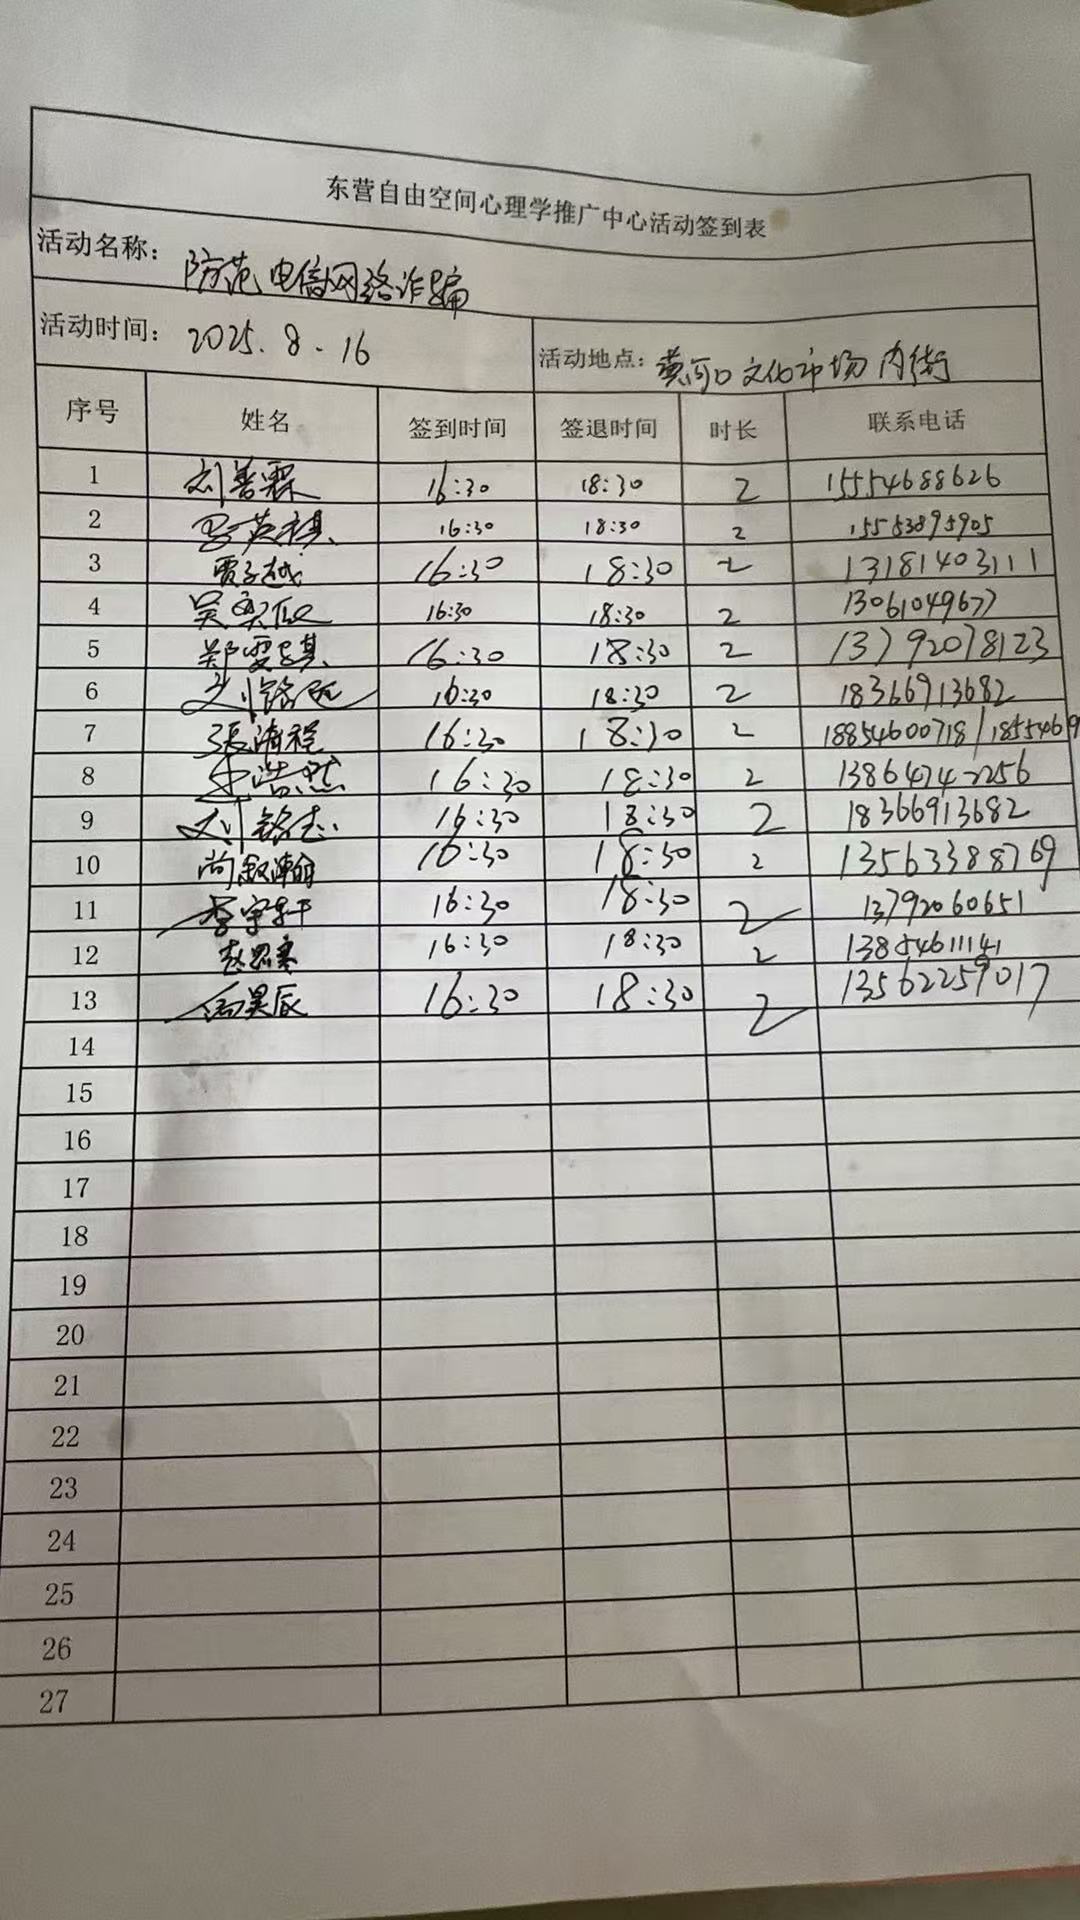 东营自由空间心理学推广中心活动签到表
活动名称: 防范电信网络诈骗
活动时间: 2025.8.16 活动地点: 黄河口文化市场内街
序号 姓名 签到时间 签退时间 时长 联系电话
1 刘善霖 16:30 18:30 2 15554688626
2 16:30 18:30 2 15553895905
3 贾子越 16:30 18:30 2 13181403111
4 吴奕 16:30 18:30 2 13061049677
5 郑雯琪 16:30 18:30 2 13792078123
6 刘铭 16:30 18:30 2 18366913682
7 張清程 16:30 18:30 2 18854600718/1855469
8 浩然 16:30 18:30 2 13864742256
9 刘铭志 16:30 18:30 2 18366913682
10 尚叙瀚 16:30 18:30 2 13563388769
11 李宇轩 16:30 18:30 2 13792060651
12 赵思寒 16:30 18:30 2 13854611141
13 昊辰 16:30 18:30 2 13562259017
14
15
16
17
18
19
20
21
22
23
24
25
26
27